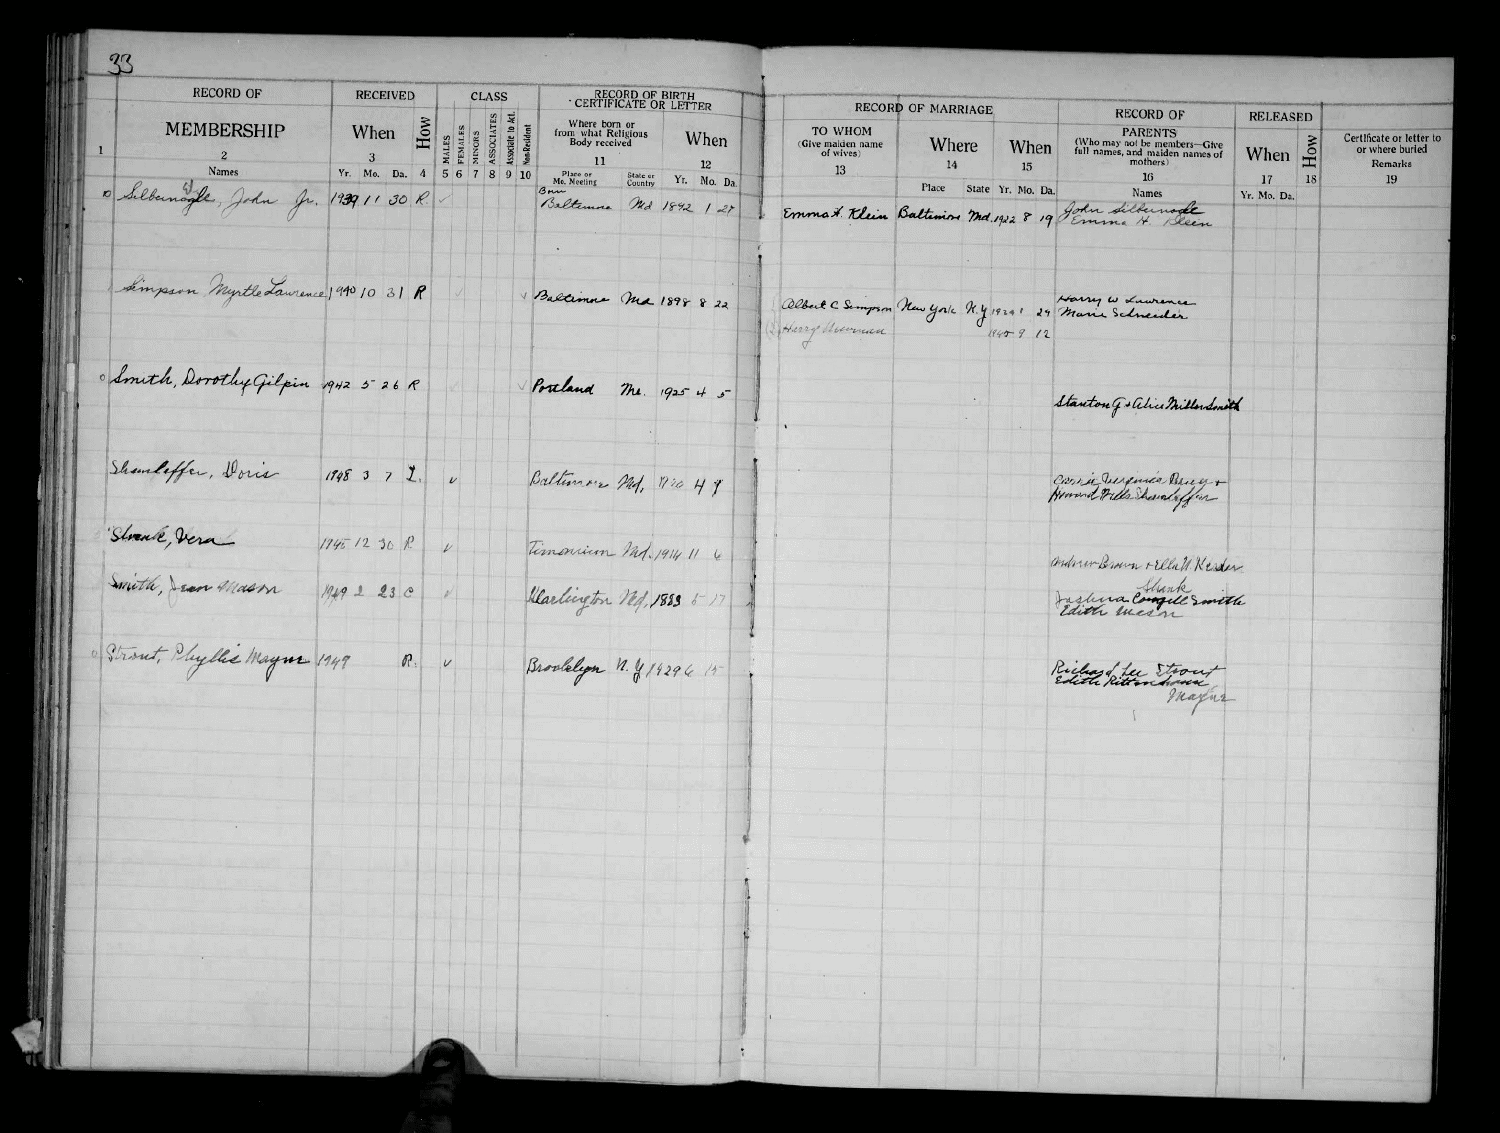 33
RECORD OF
MEMBERSHIP
RECEIVED
When
How
CLASS
MALES
FEMALES
MINORS
ASSOCIATES
Associate to Act.
Non-Resident
RECORD OF BIRTH
CERTIFICATE OR LETTER
Where born or
from what Religious
Body received
When
RECORD OF MARRIAGE
TO WHOM
(Give maiden name
of wives)
Where
When
RECORD OF
PARENTS
(Who may not be members—Give
full names, and maiden names of
mothers)
RELEASED
When
How
Certificate or letter to
or where buried
Remarks
1 2 3 4 5 6 7 8 9 10 11 12 13 14 15 16 17 18 19
Names Yr. Mo. Da. Place or Mo. Meeting State or Country Yr. Mo. Da. Place State Yr. Mo. Da. Names Yr. Mo. Da.
John Jr. 1939 11 30 R Born Baltimore Md 1892 1 27 Emma H. Klein Baltimore Md. 1922 8 19 John
Emma H. Klein
Simpson Myrtle Lawrence 1940 10 31 R Baltimore Md 1898 8 22 Albert C Simpson New York N.Y 29 Harry W Lawrence
Marie Schneider
(2) Harry 9 12
Smith, Dorothy Gilpin 1942 5 26 R Portland Me. 1925 4 5
Stanton G + Alice Miller Smith
Doris 1948 3 7 Baltimore Md. 4 9 Carrie Virginia +
Howard
Shenk, Vera 1945 12 30 R Timonium Md. 1914 11 6
Andrew Brown + Ella N.
Shenk
Smith, Jean Mason 1949 2 23 C Darlington Md. 1883 5 17 Joshua Cowgill Smith
Edith Mason
Strout, Phyllis Mayne 1949 R. Brooklyn N.Y 1929 6 15 Richard Lee Strout
Edith
Mayne